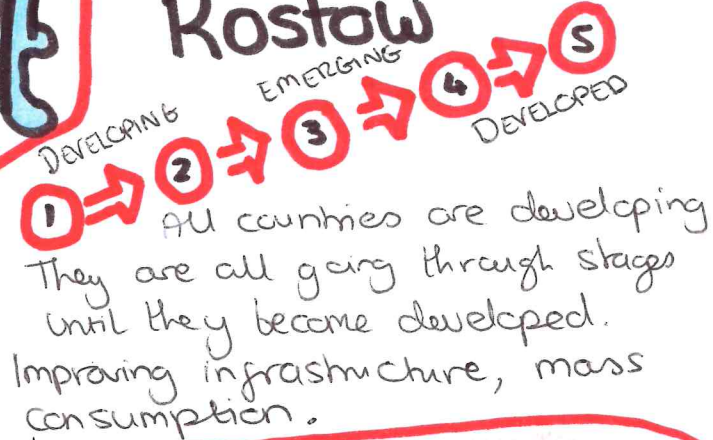 Rostow
DEVELOPING
EMERGING
DEVELOPED
1 2 3 4 5
All countries are developing
They are all going through stages
until they become developed.
Improving infrastructure, mass
consumption.